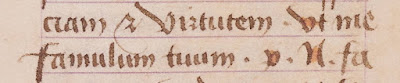 ciam & virtutem . vt me
famulum tuum . p. N. fa